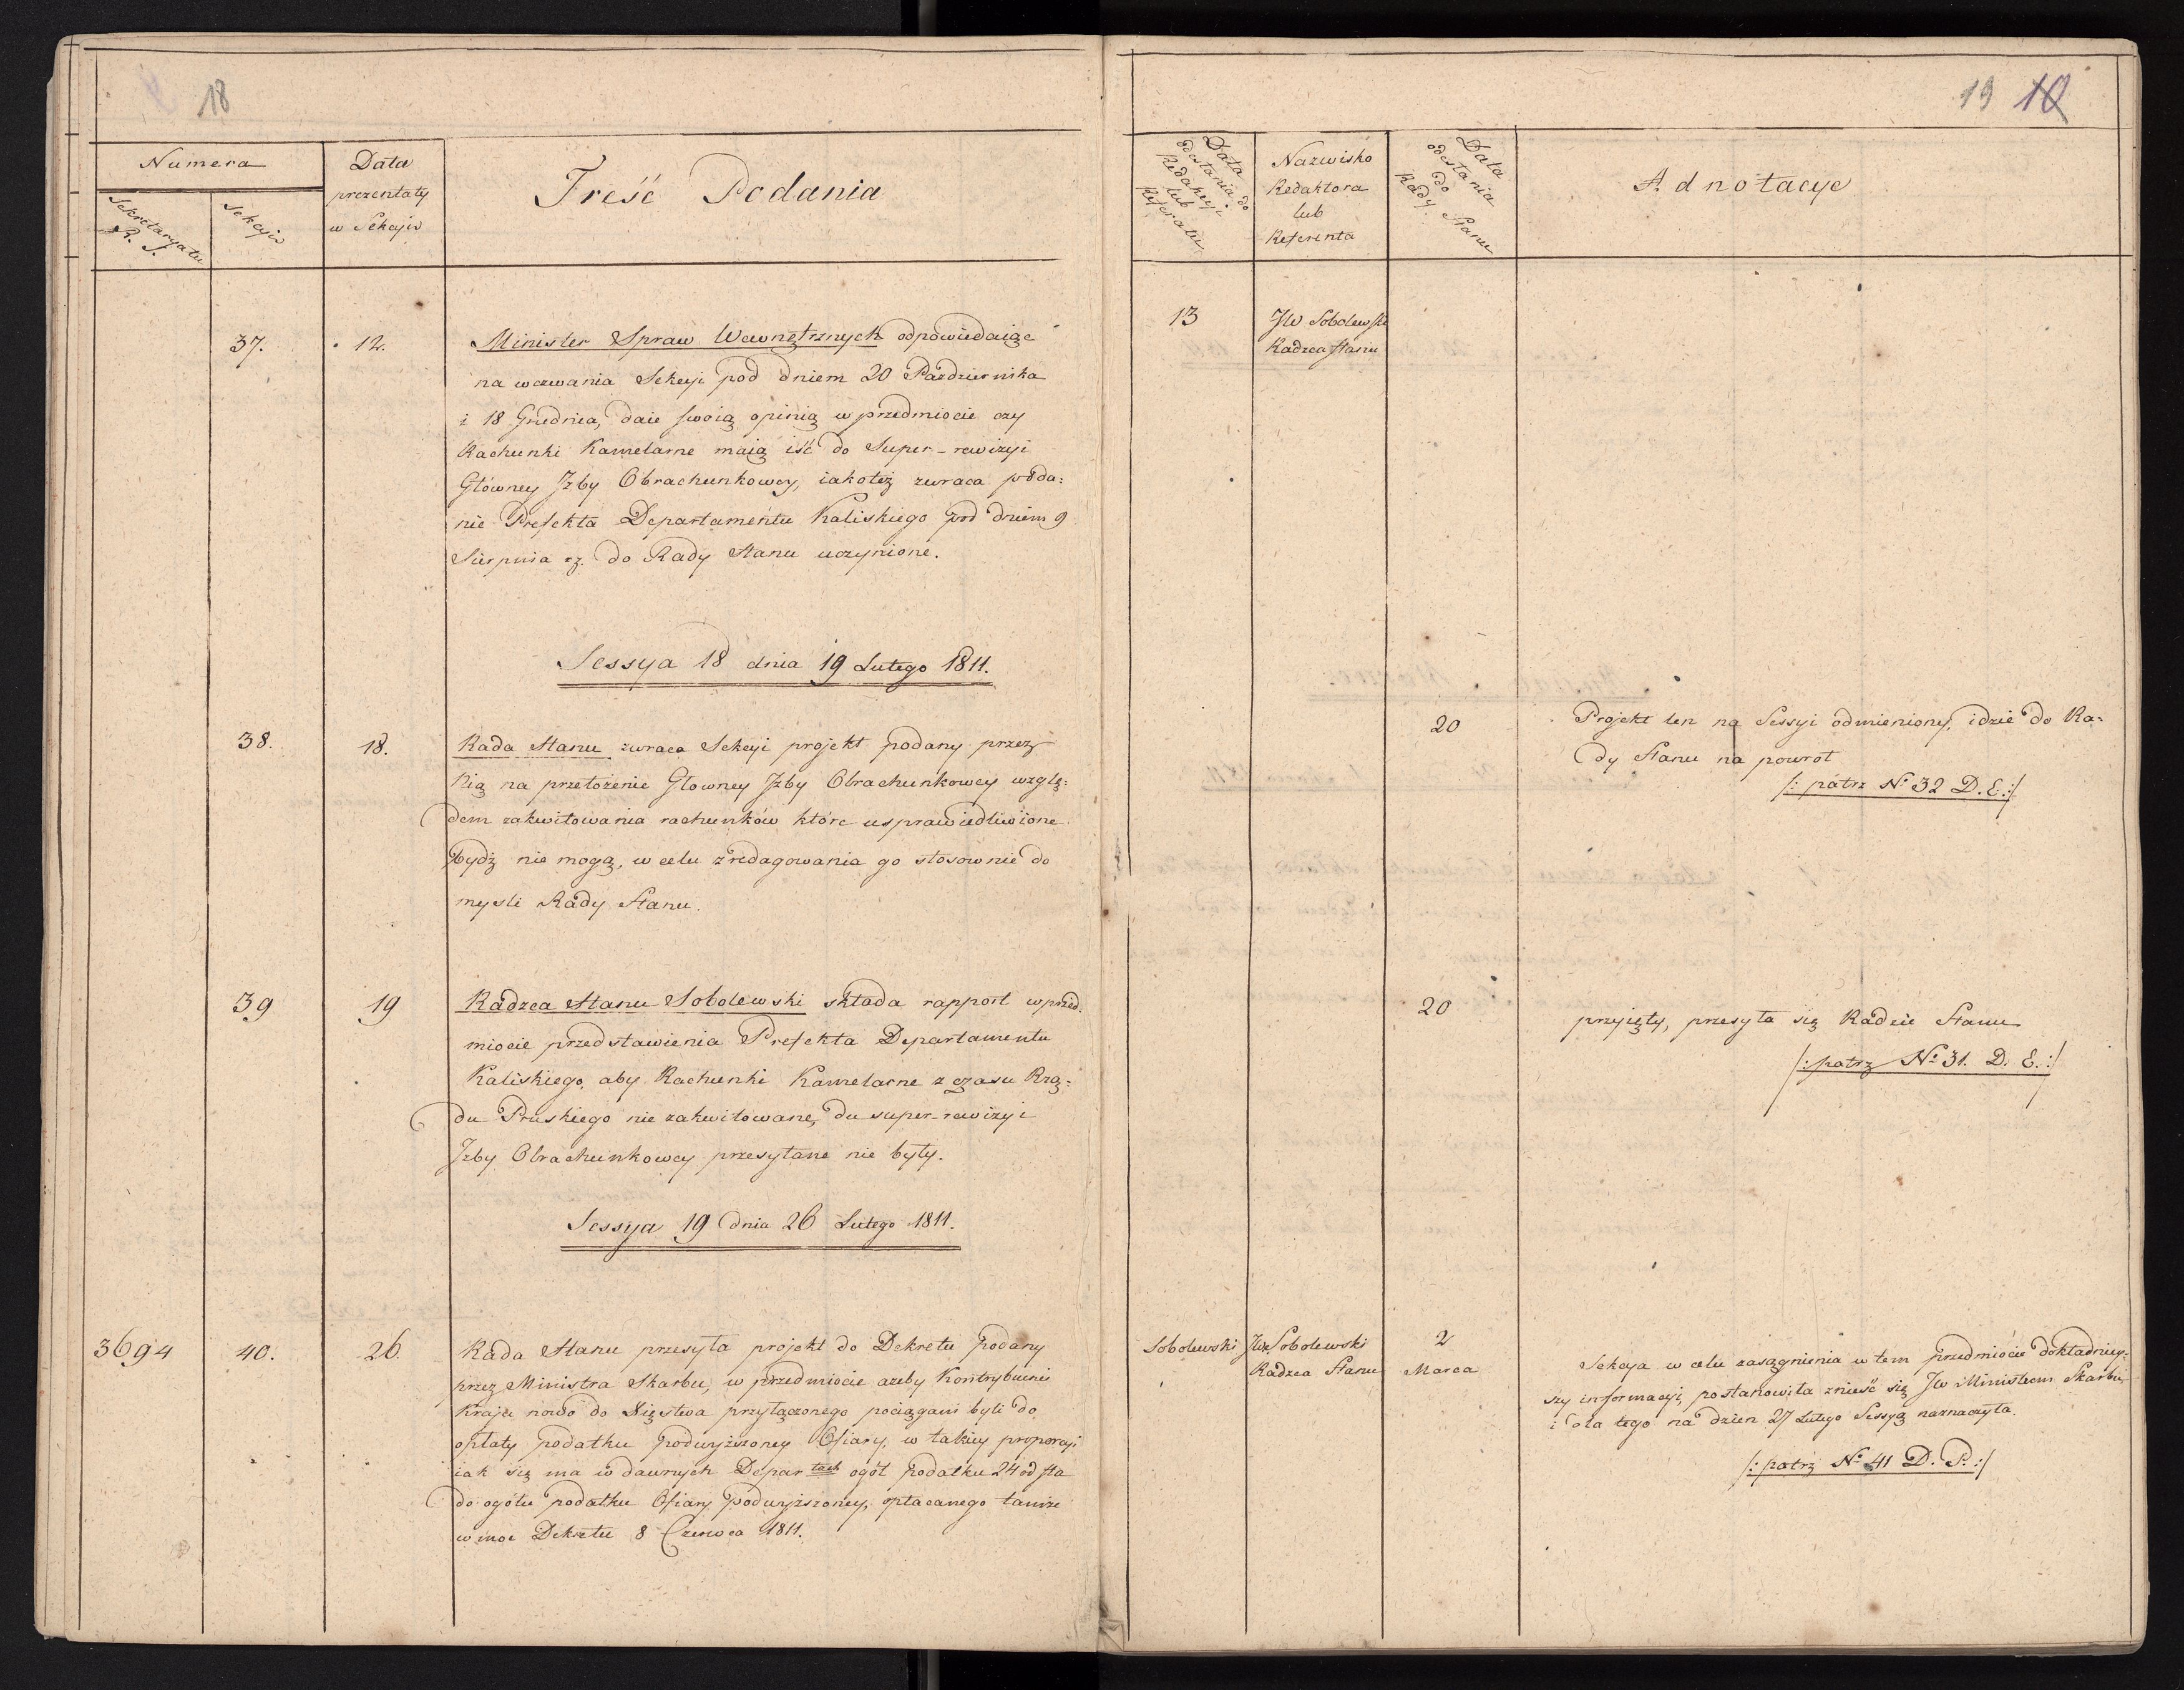 18
Numera
Sekretaryatu
R. S.
Sekcyi
Data
prezentaty
w Sekcyi
Treść Podania
37.
12.
Minister Spraw Wewnętrznych odpowiedaiąc
na wezwania Sekcyi pod dniem 20 Pazdziernika
i 18 Grudnia, daie swoią opinią w przedmiocie czy
Rachunki Kamelarne maią iść do Super-rewizyi
Główney Jzby Obrachunkowey, iakoteż zwraca poda:
nie Prefekta Departamentu Kaliskiego pod dniem 9
Sierpnia rz. do Rady Stanu uczynione.
Sessya 18 dnia 19 Lutego 1811.
38.
18.
Rada Stanu zwraca Sekcyi projekt podany przez
Nią na przełożenie Głowney Jzby Obrachunkowey wzglę:
dem zakwitowania rachunków które usprawiedliwione
bydź nie mogą, w celu zredagowania go stosownie do
mysli Rady Stanu.
39
19
Radzca Stanu Sobolewski składa rapport w przed:
miocie przedstawienia Prefekta Departamentu
Kaliskiego, aby Rachunki Kamelarne z czasu Rzą:
du Pruskiego nie zakwitowane, du super-rewizyi
Jzby Obrachunkowey przesyłane nie były.
Sessya 19 dnia 26 Lutego 1811.
3694
40.
26.
Rada Stanu przesyła projekt do Dekretu podany
przez Ministra Skarbu, w przedmiocie ażeby Kontrybuenci
Kraju nowo do Xięstwa przyłączonego pociągani byli do
opłaty podatku podwyższoney Ofiary, w takiey proporcyi
iak się ma w dawnych Depar tach ogół podatku 24 od sta
do ogółu podatku Ofiary podwyższoney, opłacanego tamże
w moc Dekretu 8 Czerwca 1811.
19 10
Data
odesłania do
Redakcyi
lub
Referatu
Nazwisko
Redaktora
lub
Referenta
Data
odesłania
do
Rady Stanu
Adnotacye
13
JW Sobolewski
Radzca Stanu
20
Projekt ten na Sessyi odmieniony, idzie do Ra:
dy Stanu na powrot
/: patrz No 32 D.E.:/
20
przyięty, przesyła się Radzie Stanu
/: patrz No 31. D. E.:/
Sobolewski
JW Sobolewski
Radzca Stanu
2
Marca
Sekcya w celu zasągnienia w tem przedmiocie dokładniey:
szy informacyi, postanowiła znieść się JW Ministrem Skarbu,
i dla tego na dzien 27 Lutego Sessyą naznaczyła.
/: patrz No 41 D. P.:/